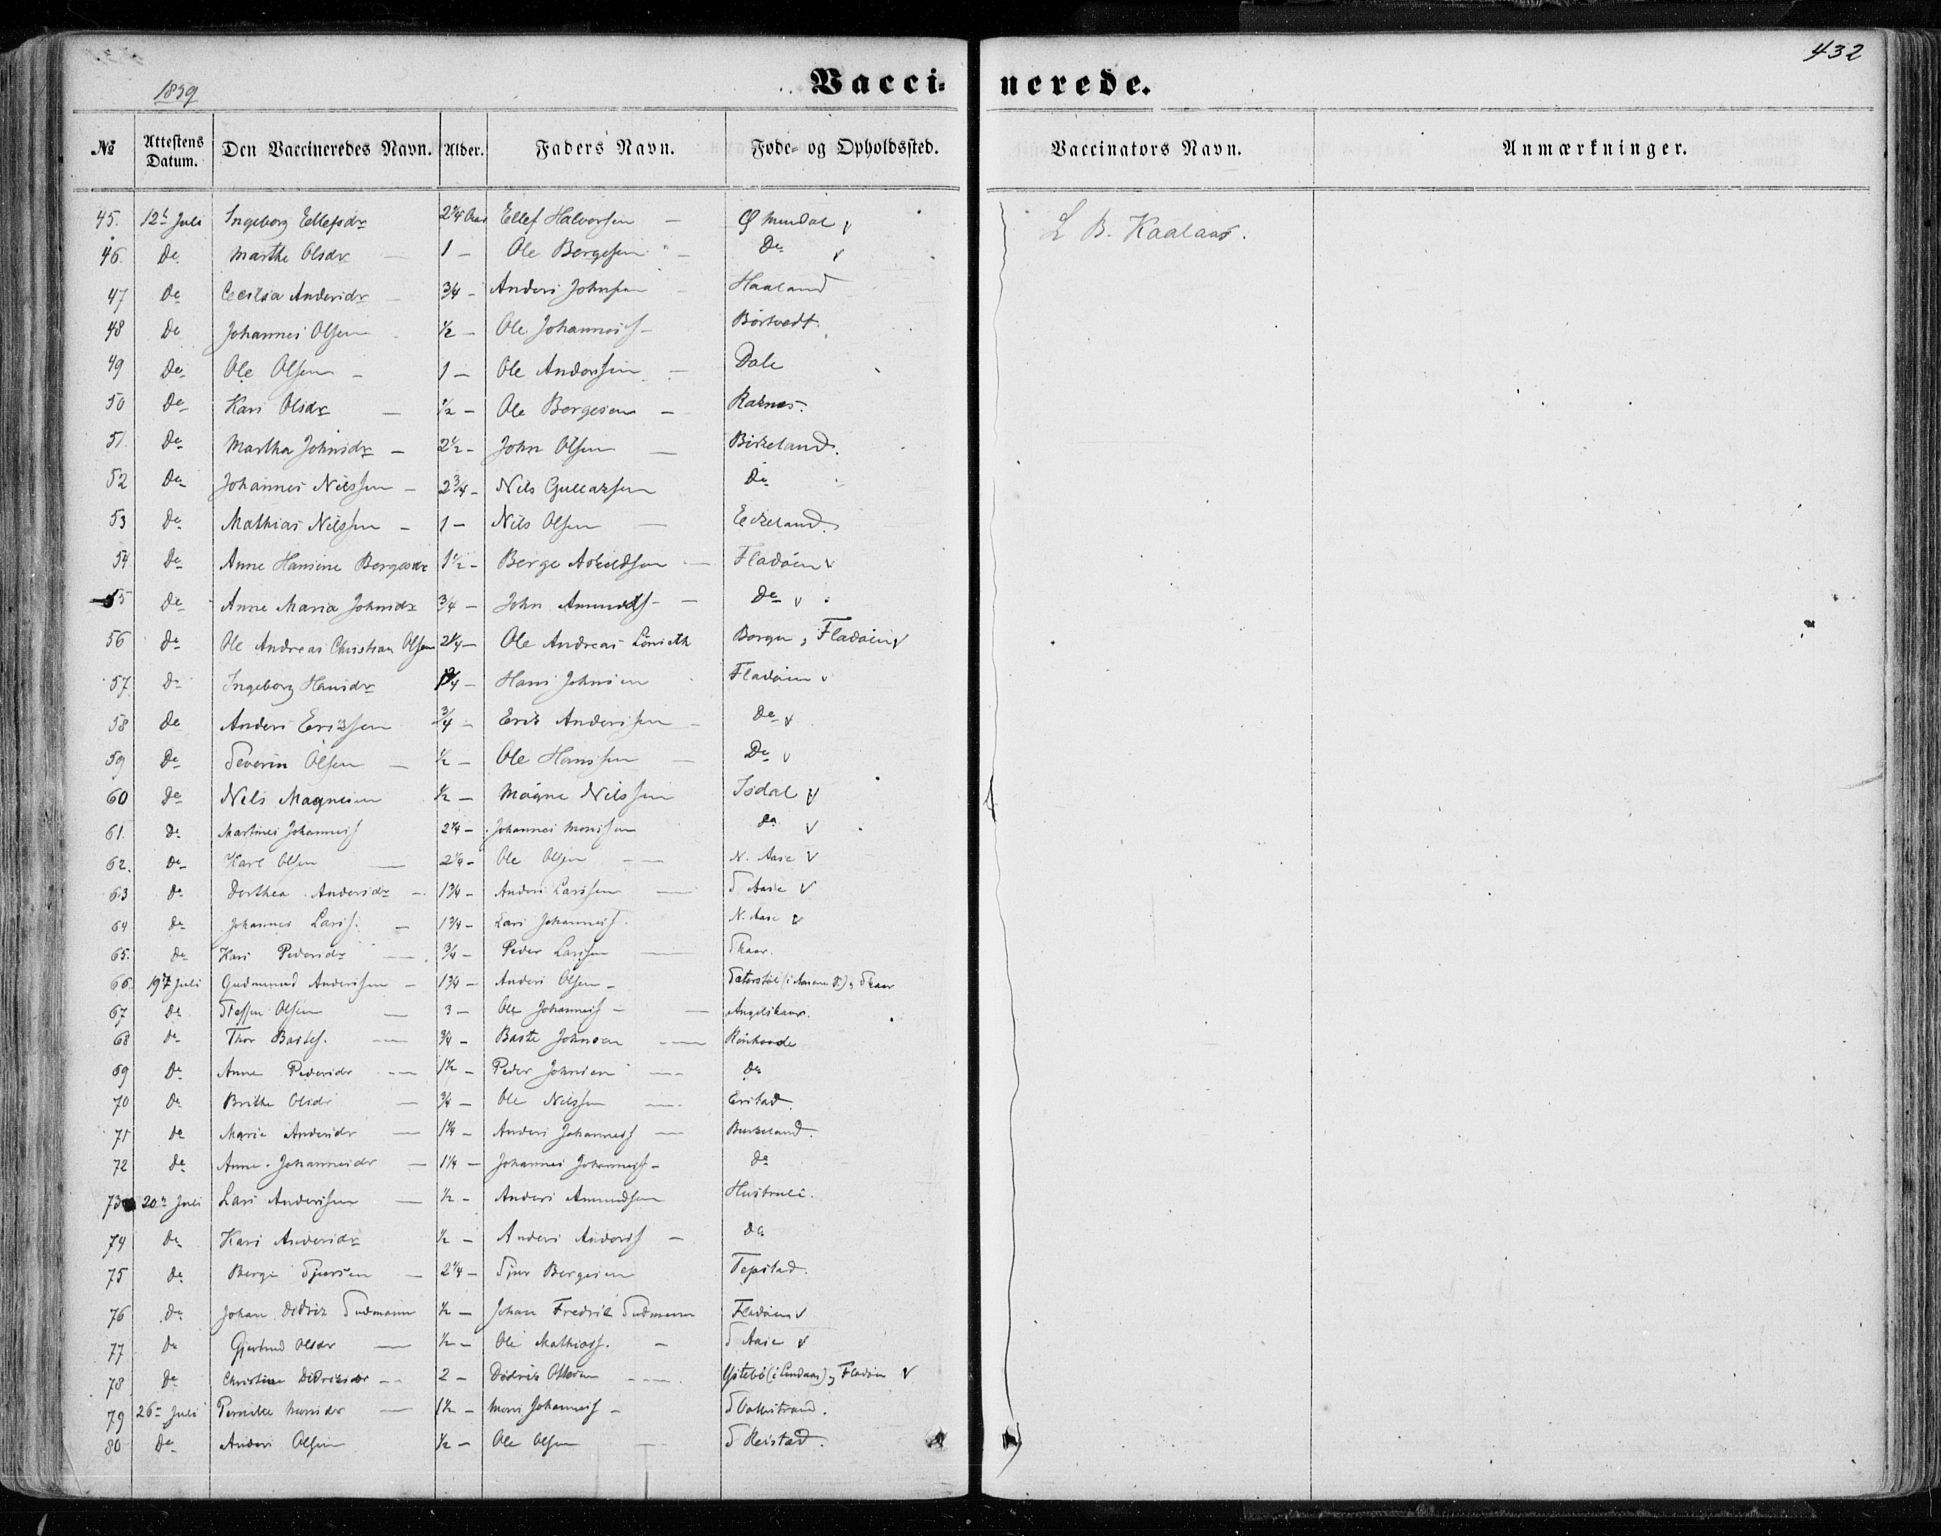 432
1859
Vaccinerede.
№ Attestens Datum. Den Vaccineredes Navn. Alder. Faders Navn. Føde- og Opholdssted. Vaccinators Navn. Anmærkninger.
45. 12t Juli Ingeborg Ellefsdr 2¼ Aar Ellef Halvorsen — Ø Mundal v L B. Kaalaas.
46 Do Marthe Olsdr — 1 — Ole Bergesen — Do v
47 Do Cecilia Andersdr — 3/4 — Anders Johnsen — Haaland
48 Do Johannes Olsen ½ — Ole Johanness — Börtvedt.
49 Do Ole Olsen — 1 — Ole Anderssen — Dale
50 Do Kari Olsdr — ½ — Ole Bergesen — Raknes.
51 Do Martha Johnsdr — 2½ — John Olsen — Birkeland.
52 Do Johannes Nilssen — 2¾ — Nils Gullaksen Do
53 Do Mathias Nilssen — 1 — Nils Olsen — Eikeland.
54 Do Anne Hansine Bergesdr 1½ — Berge — Fladöen v
55 Do Anne Maria Johnsdr ¾ — John Amunds — — Do v
56 Do Ole Andreas Christian Olsen 2¼ — Ole Andreas Bergen, Fladöen v
57 Do Ingeborg Hansdr Hans Johnsen Fladöen v
58 Do Anders Erikssen ¾ — Erik Anderssen — Do v
59 Do Severin Olsen — ½ — Ole Hanssen — Do v
60 Do Nels Magnesen ½ — Magne Nilssen Isdal v
61. Do Martines Johanness 2¼ — Johannes Monssen do v
62. Do Karl Olsen — 2¼ — Ole Olsen — N. Aase v
63 Do Dorthea Andersdr — 1¾ — Anders Larssen — S Aase v
64 Do Johannes Larss. — 1¾ — Lars Johanness. N. Aase v
65. Do Kari Pedersdr — ¾ — Peder Larssen — Skaar.
66. 19t Juli Gudmund Anderssen — 1¾ — Anders Olsen — Skaar
67 Do Steffen Olsen — 3 — Ole Johanness — Angelskaar.
68 Do Thor Bastes. — ¾ — Baste Johnsen —
69 Do Anne Pedersdr — 1½ — Peder Johnsen — Do
70 Do Brithe Olsdr — ¾ — Ole Nilssen — Eristad.
71 Do Marie Andersdr — 1¾ — Anders Johanness —
72 Do Anne Johannesdr — 1¼ — Johannes Johanness — do
73 20t Juli Lars Anderssen — ½ — Anders Amundsen
74 Do Kari Andersdr ½ — Anders Anderss — do
75 Do Berge Sjursen — 2¼ — Sjur Bergesen Tepstad.
76 Do Johan Didrik Sudmann ½ — Johan Fredrik Sudmann Fladöen v
77 Do Gjertrud Olsdr — ½ — Ole Mathiass. — S Aase v
78 Do Christine Didriksdr — 2 — Didrik — (i Lindaas), Fladöen v
79 26t Juli Pernille Monsdr — 1½ — Mons Johanness —
80 Do Anders Olsen ½ — Ole Olsen —